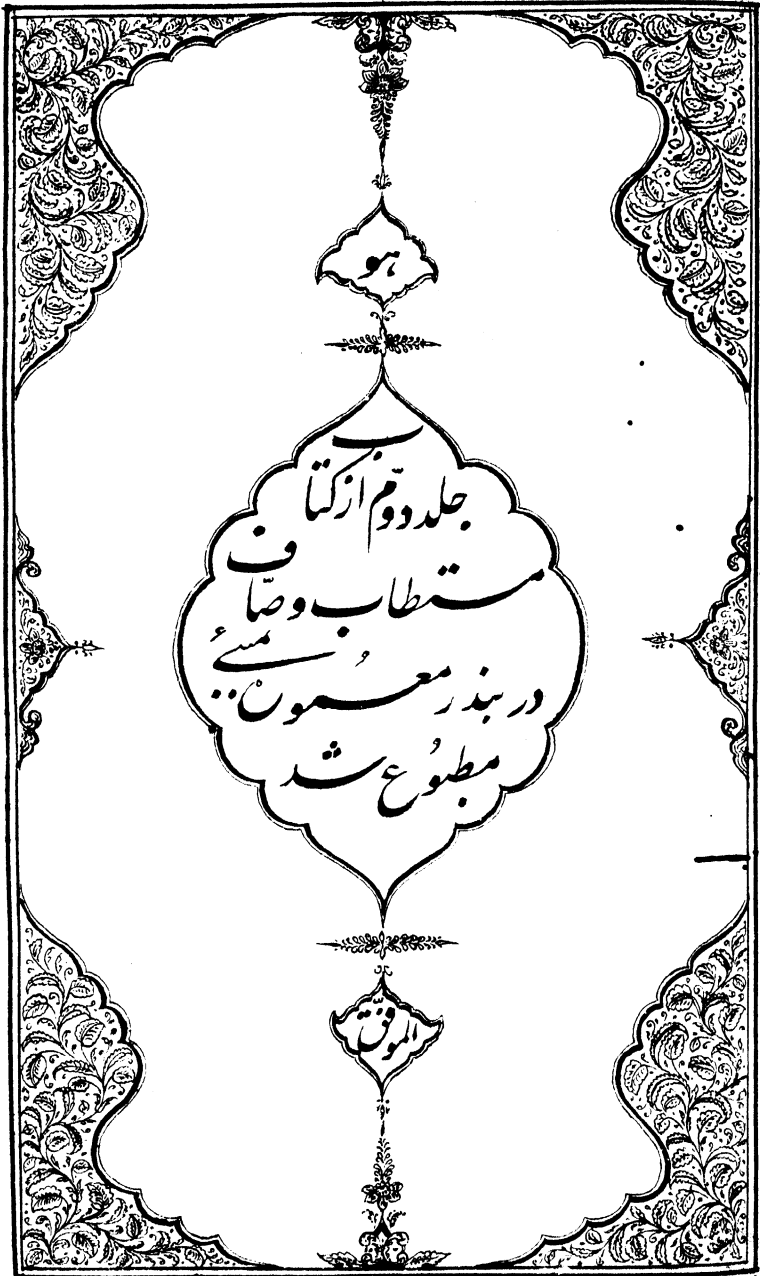 هو
جلد دوّم از کتاب
مستطاب وصّاف
در بندر معمورهٔ بمبئی
مطبوُع شد
الموفّق